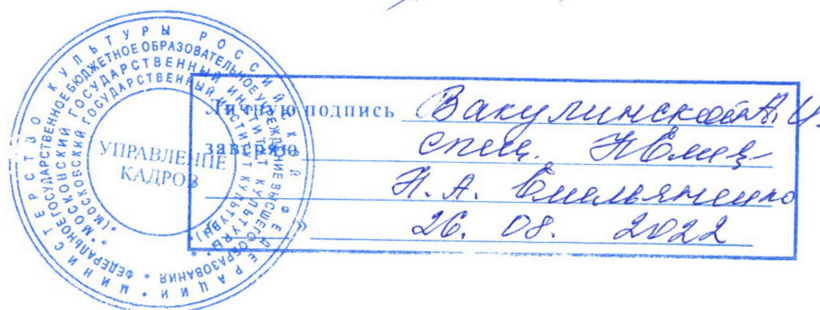 МИНИСТЕРСТВО КУЛЬТУРЫ РОССИЙСКОЙ ФЕДЕРАЦИИ
ФЕДЕРАЛЬНОЕ ГОСУДАРСТВЕННОЕ БЮДЖЕТНОЕ ОБРАЗОВАТЕЛЬНОЕ УЧРЕЖДЕНИЕ ВЫСШЕГО ОБРАЗОВАНИЯ
"МОСКОВСКИЙ ГОСУДАРСТВЕННЫЙ ИНСТИТУТ КУЛЬТУРЫ"
(МОСКОВСКИЙ ГОСУДАРСТВЕННЫЙ ИНСТИТУТ КУЛЬТУРЫ)
УПРАВЛЕНИЕ
КАДРОВ
Личную подпись Вакулинской А.И.
заверяю спец.
Н.А. Емельяненко
26. 08. 2022